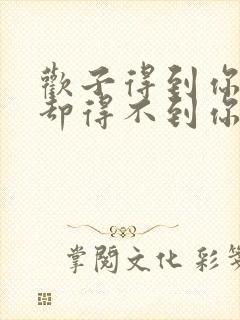 歡子得到你
却得不到你
掌閱文化 彩